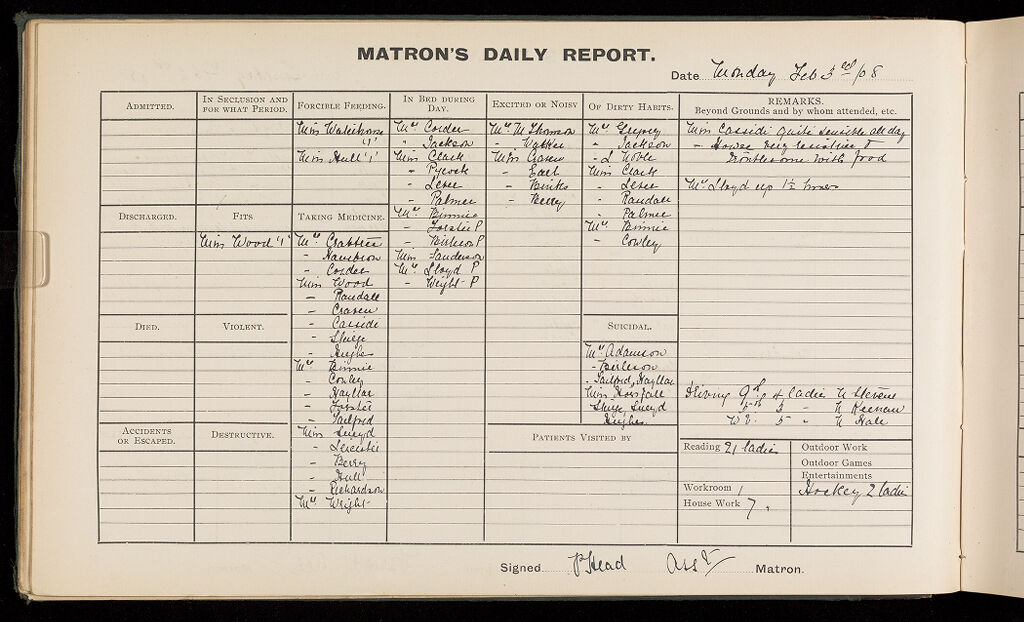 MATRON'S DAILY REPORT.
Date Monday Feb 3rd /08
ADMITTED.
IN SECLUSION AND FOR WHAT PERIOD.
FORCIBLE FEEDING.
Miss Waterhouse
"1"
Miss Hull "1"
IN BED DURING DAY.
Mrs Corder
" Jackson
Miss Clark
- Pycock
- Lesee
- Palmer
Mrs Binnie
- Forster P
- Birleson P
Miss Sanderson
Mrs Lloyd P
- Wright P
EXCITED OR NOISY
Mrs M Thomson
- Walker
Miss Craven
- Earl
- Binks
- Berry
OF DIRTY HABITS.
Mrs Gregory
- Jackson
- L Noble
Miss Clark
- Lesee
- Randall
- Palmer
Mrs Binnie
- Cowley
REMARKS.
Beyond Grounds and by whom attended, etc.
Miss Cassidi quite sensible all day
- Howse very resistive &
troublesome with food
Mrs Lloyd up 1½ hours
Driving 9 4 ladies N Stevens
5 - N Keenan
5 - N Hale
DISCHARGED.
FITS
Miss Wood "1"
TAKING MEDICINE.
Mrs Crabtree
- Corder
Miss Wood
- Randall
- Craven
- Cassidi
- Hughes
Mrs Binnie
- Cowley
- Hayllar
- Forster
- Tailford
Miss
- Berry
- Hull
- Richardson
Mrs Wright
DIED.
VIOLENT.
SUICIDAL.
Mrs Adamson
- Birleson
- Tailford, Hayllar
Miss Horsfall
Hughes
ACCIDENTS OR ESCAPED.
DESTRUCTIVE.
PATIENTS VISITED BY
Reading 21 ladies
Outdoor Work
Outdoor Games
Entertainments
Hockey 2 ladies
Workroom 1
House Work 7 "
Signed P Head Asst Matron.